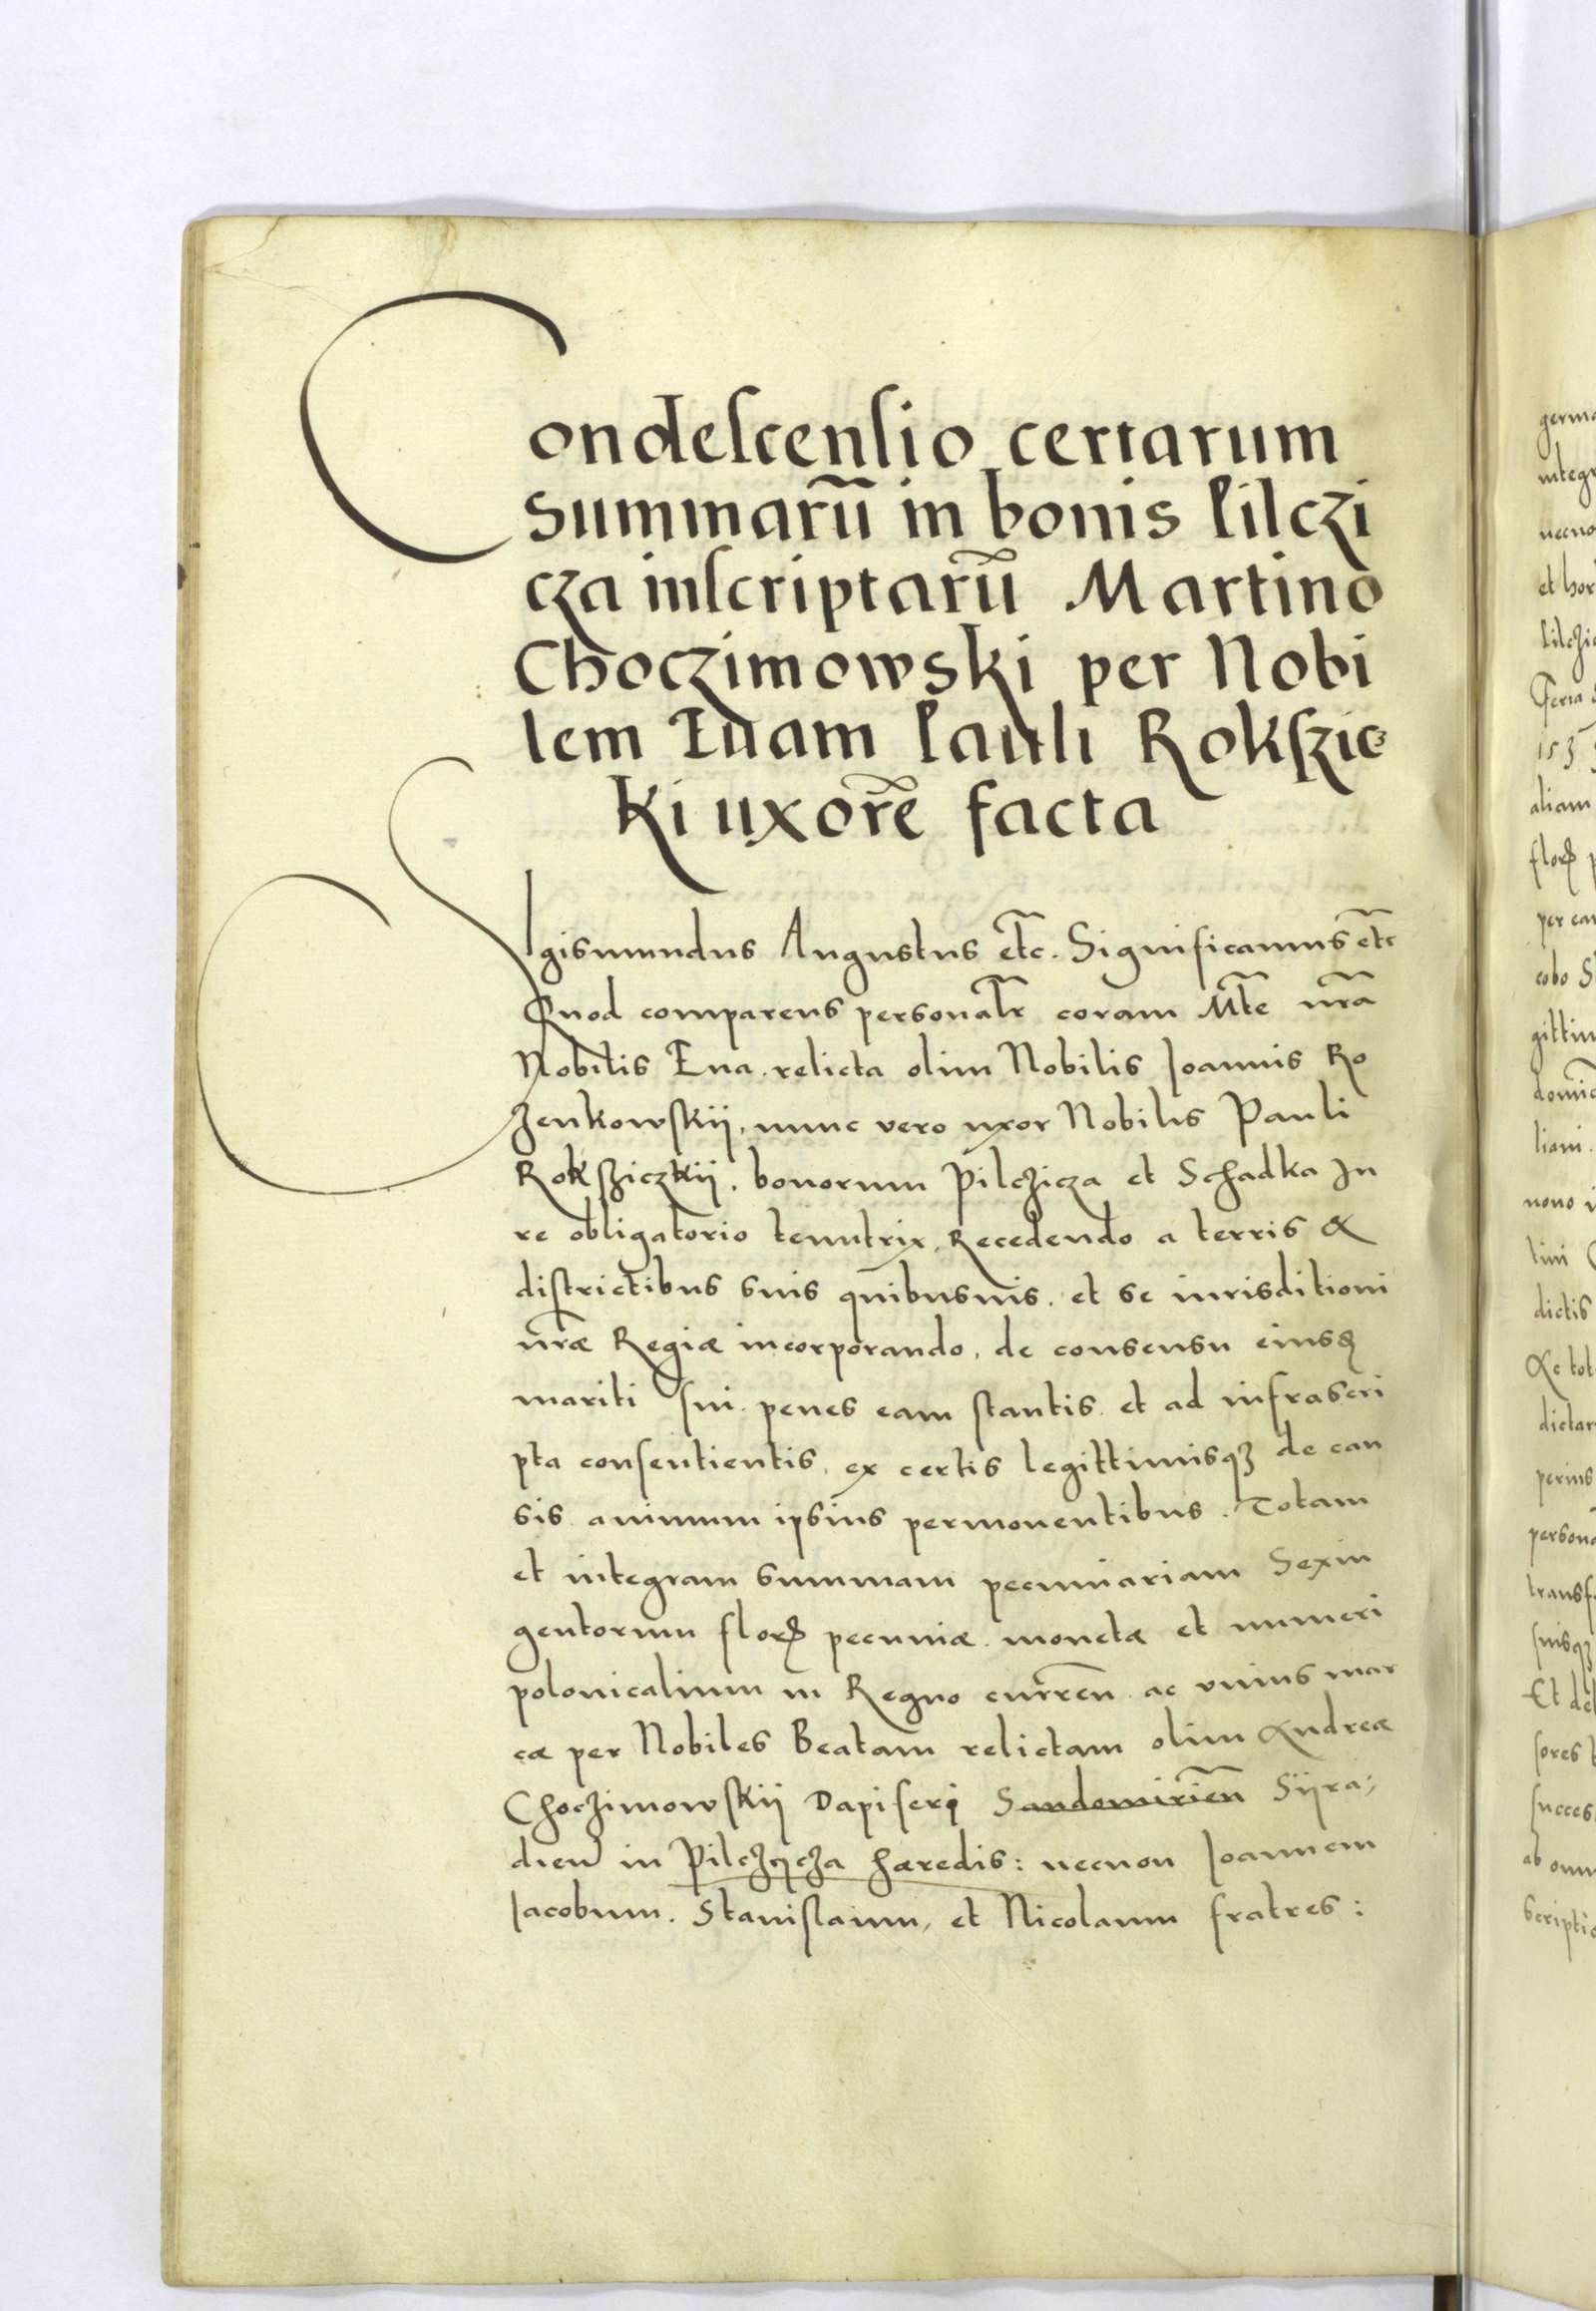 Condescensio certarum
summarũ in bonis Pilczi
cza inscriptarũ Martino
Choczimowski per Nobi
lem Evam Pauli Rokszic
ki uxorẽ facta
Sigismundus Augustus etc. Significamus etc
Quod comparens personalr coram Mte nra
Nobilis Eua relicta olim Nobilis Joannis Ro
zenkowskij, nunc vero uxor Nobilis Pauli
Rokssziczkij, bonorum Pilczicza et Schadka Ju
re obligatorio tenutrix, Recedendo a terris &
districtibus suis quibusuis, et se iurisditioni
nræ Regiæ incorporando, de consensu eiusd
mariti sui penes eam stantis et ad infrascri
pta consentientis, ex certis legittimisqz de cau
sis animum ipsius permouentibus. Totam
et integram summam pecuniariam Sexin
gentorum flor pecuniæ monetæ et numeri
polonicalium in Regno curren ac unius mar
cæ per Nobiles Beatam relictam olim Andreæ
Choczimowskij Dapiferi Sandomirien Sijra
dien in Pilczycza hæredis: necnon Joannem
Jacobum. Stanislaum, et Nicolaum fratres:
germa
integr
necno
et hor
Pilczi
Feria
153
aliam
flor p
per ea
cobo S
gittim
domi
lioni.
nono i
tini
dictis
Ac tot
dictar
perius
persona
transf
suisqz
Et de
sores
succes
ab omn
scriptio